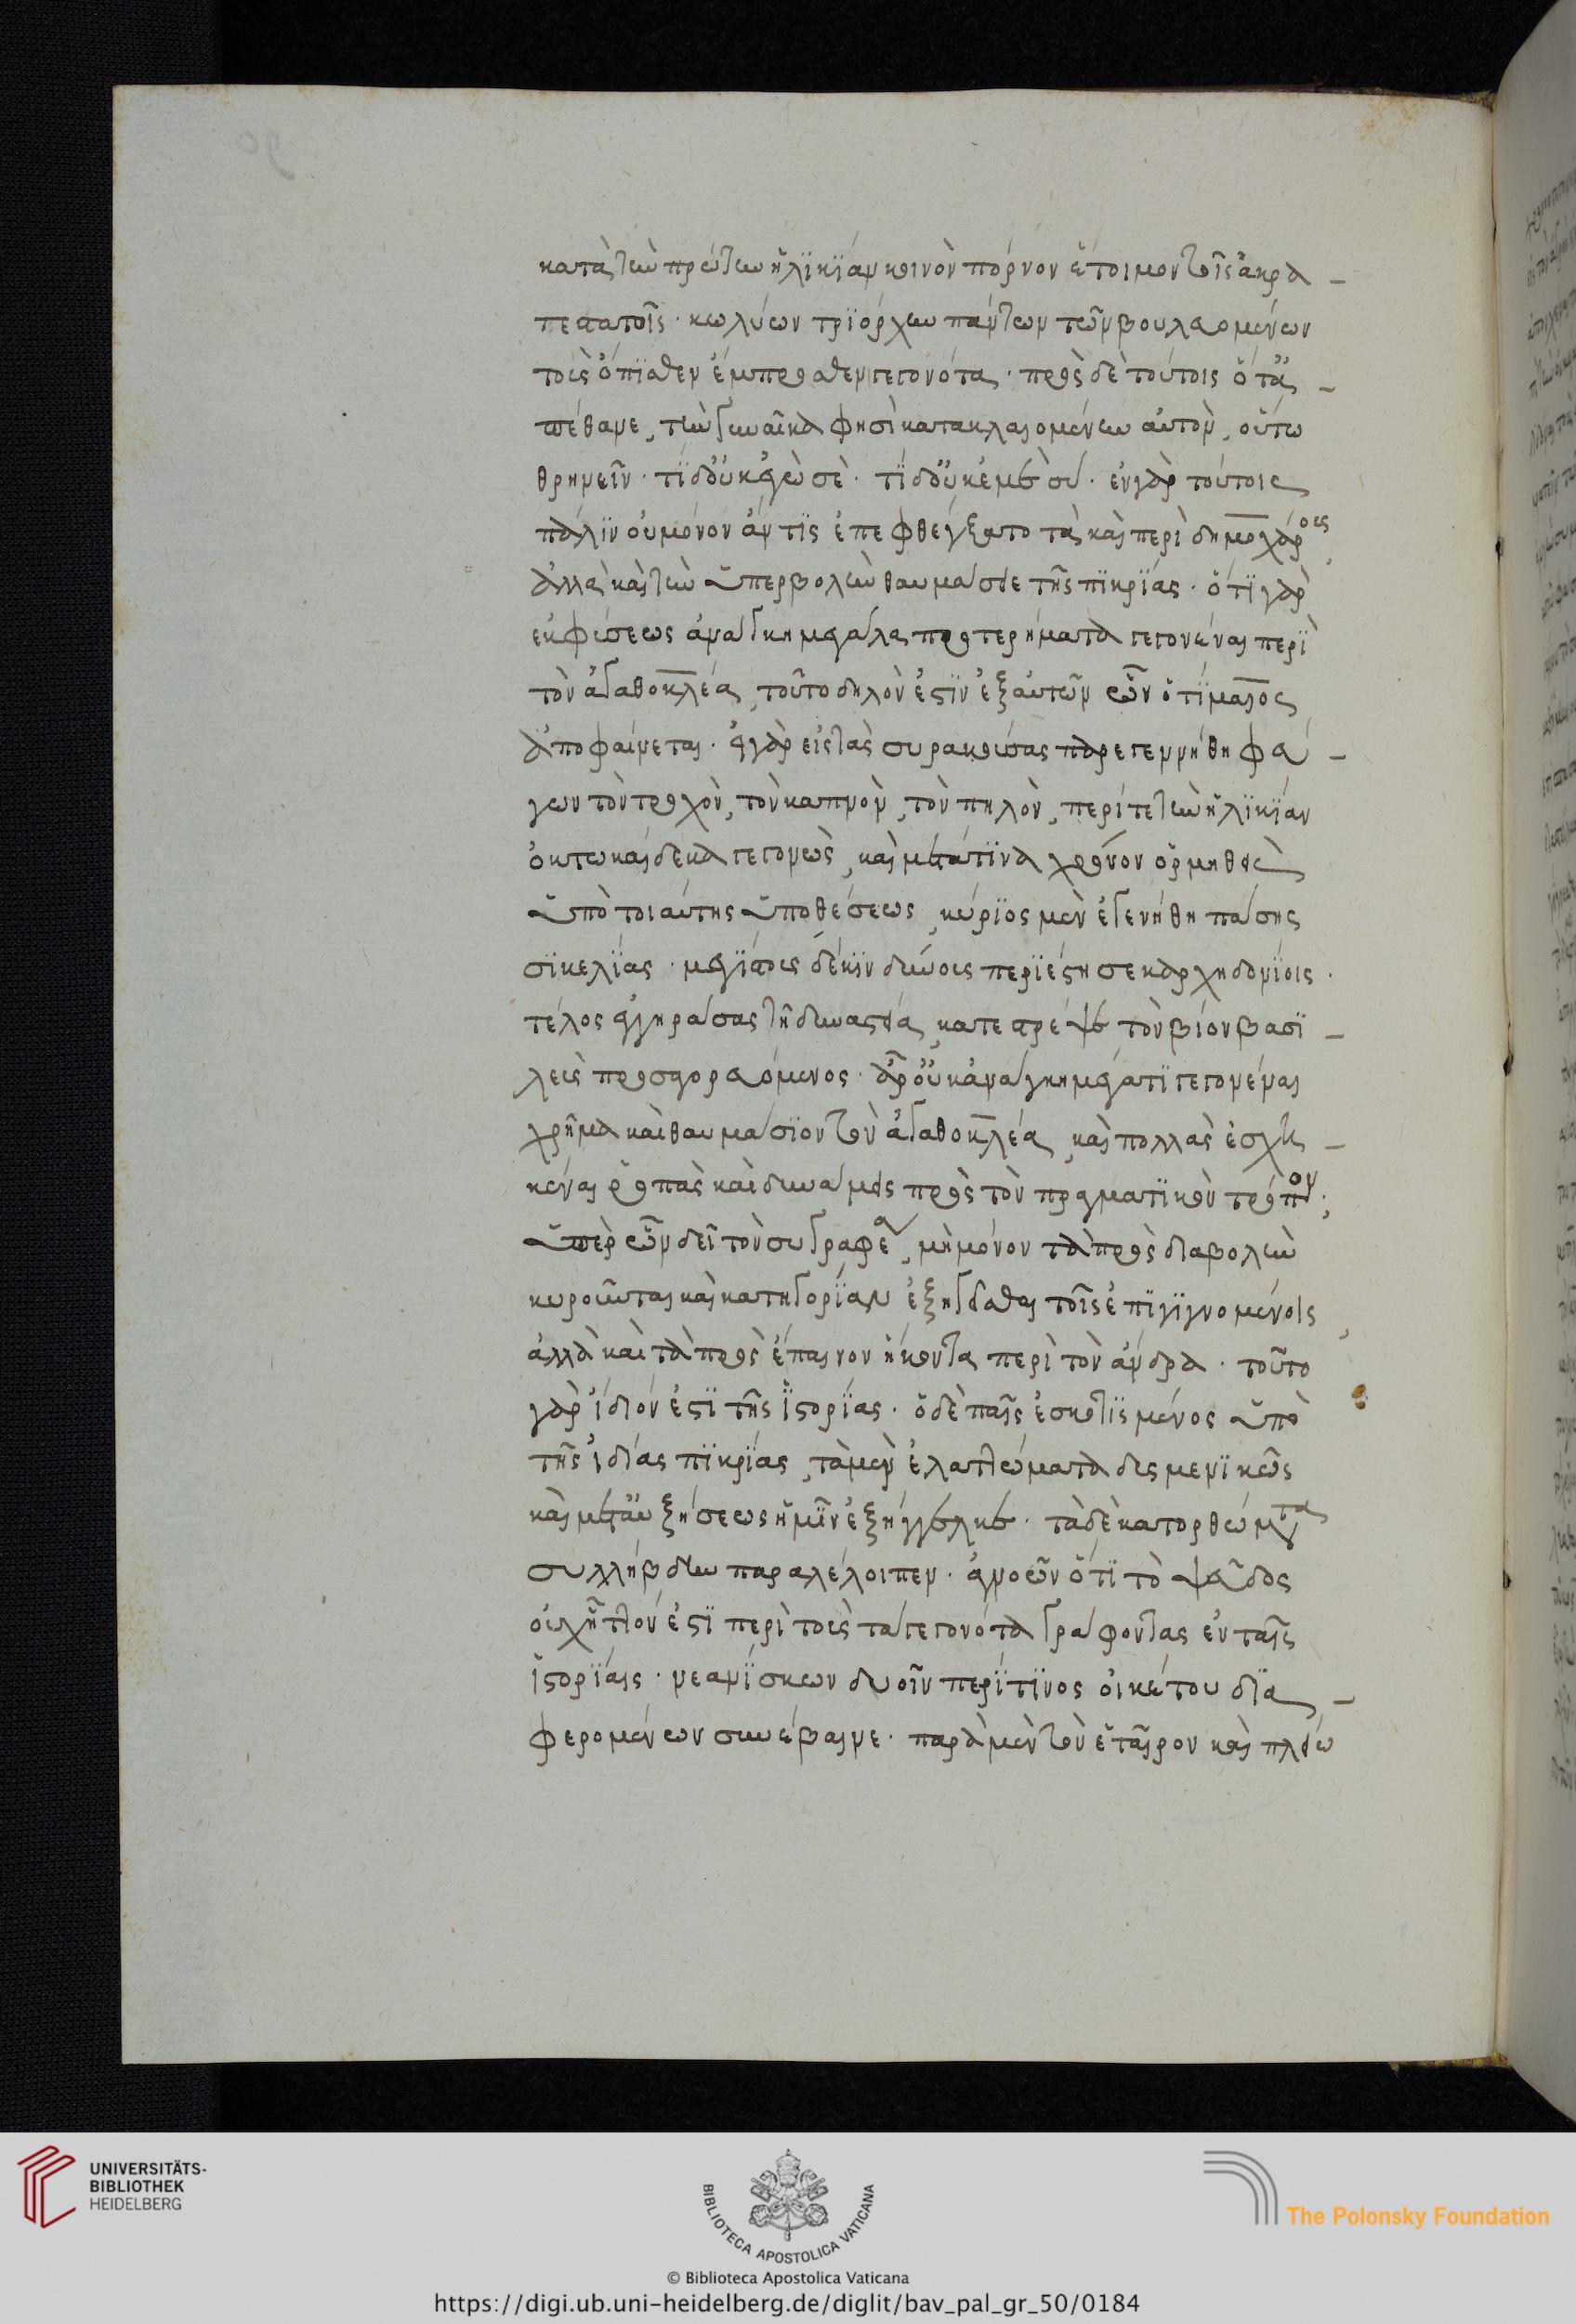 κατὰ τὴν πρώτην ἡλϊκϊαν κοινὸν πόρνον ἕτοιμον τοῖς ἀκρα-
τεστατοῖς· κωλύων τρϊόρχην πάντων τῶν βουλευομένων
τοὺς ὄπϊσθεν ἔμπροσθεν γεγονότα· πρὸς δὲ τούτοις ὅτἂ-
πέθανε, τὴν γυναῖκα φησὶ κατακλαιομένην αὐτὸν, οὕτω
θρηνεῖν· τί δ' οὐκ ἐγὼ σὲ· τί δ' οὐκ ἐμὲ σύ· ἐν γὰρ τούτοις
πάλϊν οὐ μόνον ἄν τϊς ἐπεφθέγξατο τὰ καὶ περὶ δημοχάρους,
ἀλλὰ καὶ τὴν ὑπερβολὴν θαυμάσειε τῆς πϊκρϊας· ὅτϊ γὰρ
ἐκ φύσεως ἀνάγκη μεγάλα προτερήματα γεγονέναι περὶ
τὸν ἀγαθοκλέα, τοῦτο δηλόν ἐστϊν ἐξ αὐτῶν ὧν ὁ τίμαιος
ἀποφαίνεται· εἰ γὰρ εἰς τὰς συρακούσας παρεγεννήθη φεύ-
γων τὸν τροχὸν, τὸν καπνὸν, τὸν πηλὸν, περί τε τὴν ἡλϊκϊαν
ὀκτωκαίδεκα γεγονὼς, καὶ μετά τϊνα χρόνον ὁρμηθεὶς
ὑπὸ τοιαύτης ὑποθέσεως, κύρϊος μὲν ἐγενήθη πάσης
σϊκελϊας· μεγϊστους δὲ κϊνδύνους περϊέστησε καρχηδονϊοις·
τέλος ἐγγηράσας τῆ δυναστεία, κατέστρεψε τὸν βίον βασϊ-
λεὺς προσαγορευόμενος· ἆρ' οὐκ ἀνάγκη μέγα τϊ γεγονέναι
χρῆμα καὶ θαυμάσϊον τὸν ἀγαθοκλέα, καὶ πολλὰς ἐσχη-
κέναι ῥοπὰς καὶ δυνάμεις πρὸς τὸν πραγματϊκὸν τρόπον;
ὑπὲρ ὧν δεῖ τὸν συγραφέα, μὴ μόνον τὰ πρὸς διαβολὴν
κυροῦντα καὶ κατηγορϊαν ἐξηγεῖσθαι τοῖς ἐπϊγϊγνομένοις,
ἀλλὰ καὶ τὰ πρὸς ἔπαινον ἥκοντα περὶ τὸν ἄνδρα· τοῦτο
γὰρ ἴδιόν ἐστϊ τῆς ἱστορϊας· ὁ δὲ παῖς ἐσκοτϊσμένος ὑπὸ
τῆς ἰδίας πϊκρϊας, τὰ μὲν ἐλαττώματα δυσμενϊκῶς
καὶ μετ' αὐξήσεως ἡμῖν ἐξήγγελκε· τὰ δὲ κατορθώματα
συλλήβδην παραλέλοιπεν· ἀγνοῶν ὅτϊ τὸ ψεῦδος
οὐχ ἧττόν ἐστϊ περὶ τοὺς τὰ γεγονότα γράφοντας ἐν ταῖς
ἱστορϊαις· νεανϊσκων δυοῖν περὶ τϊνος οἰκέτου δϊα-
φερομένων συνέβαινε· παρὰ μὲν τὸν ἕταιρον καὶ πλείω
UNIVERSITÄTS-
BIBLIOTHEK
HEIDELBERG
BIBLIOTECA APOSTOLICA VATICANA
The Polonsky Foundation
© Biblioteca Apostolica Vaticana
https://digi.ub.uni-heidelberg.de/diglit/bav_pal_gr_50/0184